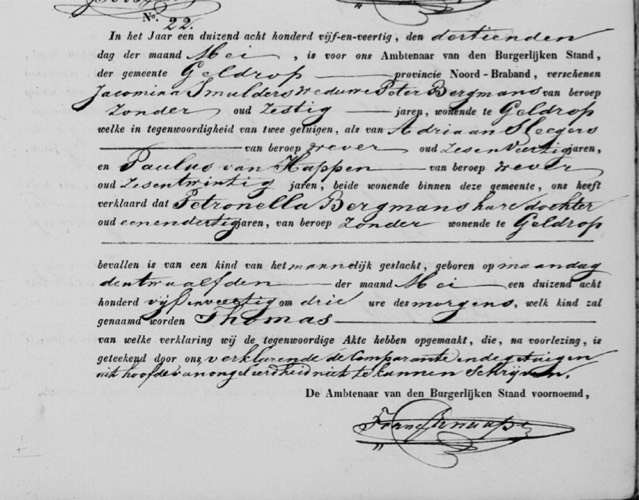 No. 22.
In het Jaar een duizend acht honderd vijf-en-veertig, den dertienden
dag der maand Mei, is voor ons Ambtenaar van den Burgerlijken Stand,
der gemeente Geldrop provincie Noord-Braband, verschenen
Jacomina Smulders weduwe Peter Bergmans van beroep
Zonder oud Zestig jaren, wonende te Geldrop
welke in tegenwoordigheid van twee getuigen, als van Adriaan Sleegers
van beroep wever oud Zesenveertig jaren,
en Paulus van Happen van beroep wever
oud Zesentwintig jaren, beide wonende binnen deze gemeente, ons heeft
verklaard dat Petronella Bergmans hare dochter
oud eenendertig jaren, van beroep Zonder wonende te Geldrop
bevallen is van een kind van het mannelijk geslacht, geboren op maandag
den twaalfden der maand Mei een duizend acht
honderd vijf en veertig om drie ure des morgens, welk kind zal
genaamd worden Thomas
van welke verklaring wij de tegenwoordige Akte hebben opgemaakt, die, na voorlezing, is
geteekend door ons, verklarende de Comparante en de getuigen
uit hoofde van ongeleerdheid niet te kunnen Schrijven.
De Ambtenaar van den Burgerlijken Stand voornoemd,